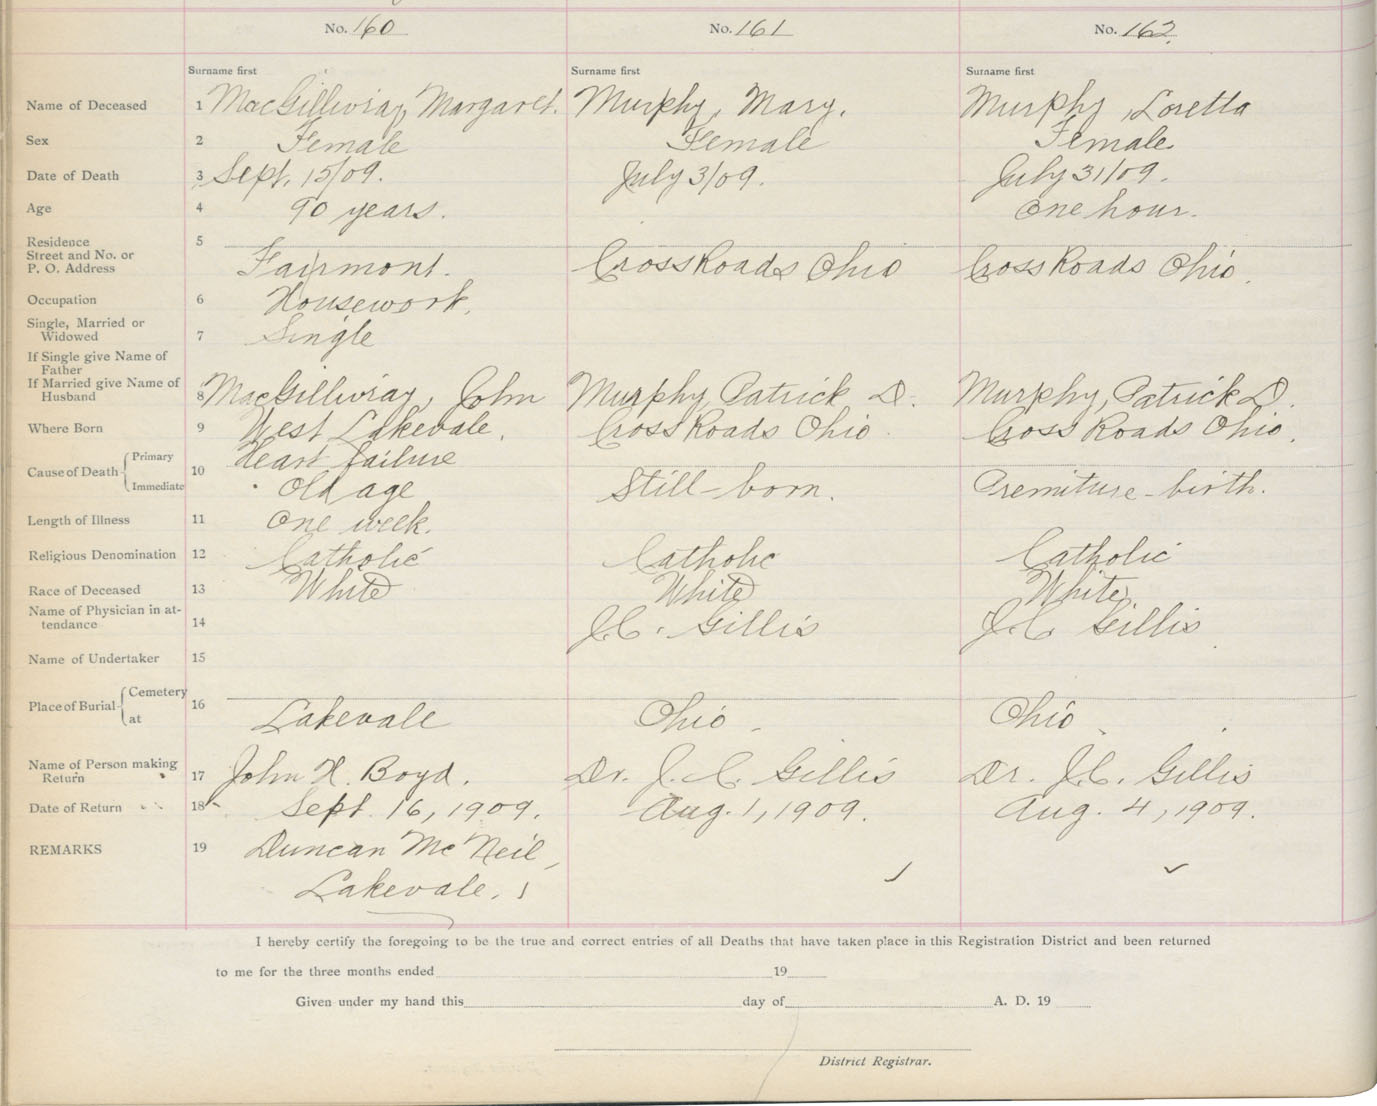 No. 160 No. 161 No. 162
Surname first Surname first Surname first
Name of Deceased 1 MacGillivray, Margaret. Murphy, Mary. Murphy, Loretta
Sex 2 Female Female Female.
Date of Death 3 Sept. 15/09. July 3/09. July 31/09.
Age 4 90 years. One hour.
Residence 5
Street and No. or
P. O. Address Fairmont. CrossRoads Ohio CrossRoads Ohio.
Occupation 6 Housework.
Single, Married or
Widowed 7 Single
If Single give Name of
Father
If Married give Name of
Husband 8 MacGillivray, John Murphy, Patrick D. Murphy, Patrick D.
Where Born 9 West Lakevale. CrossRoads Ohio. Cross Roads Ohio.
Cause of Death { Primary Heart failure
10
Immediate Old age Still-born. Premiture-birth.
Length of Illness 11 One week.
Religious Denomination 12 Catholic Catholic Catholic
Race of Deceased 13 White White White
Name of Physician in at-
tendance 14 J.C. Gillis J.C. Gillis
Name of Undertaker 15
Place of Burial { Cemetery
16
at Lakevale Ohio. Ohio.
Name of Person making
Return 17 John H. Boyd. Dr. J. C. Gillis Dr. J.C. Gillis
Date of Return 18 Sept. 16, 1909. Aug. 1, 1909. Aug. 4, 1909.
REMARKS 19 Duncan McNeil,
Lakevale.
I hereby certify the foregoing to be the true and correct entries of all Deaths that have taken place in this Registration District and been returned
to me for the three months ended 19
Given under my hand this day of A. D. 19
District Registrar.